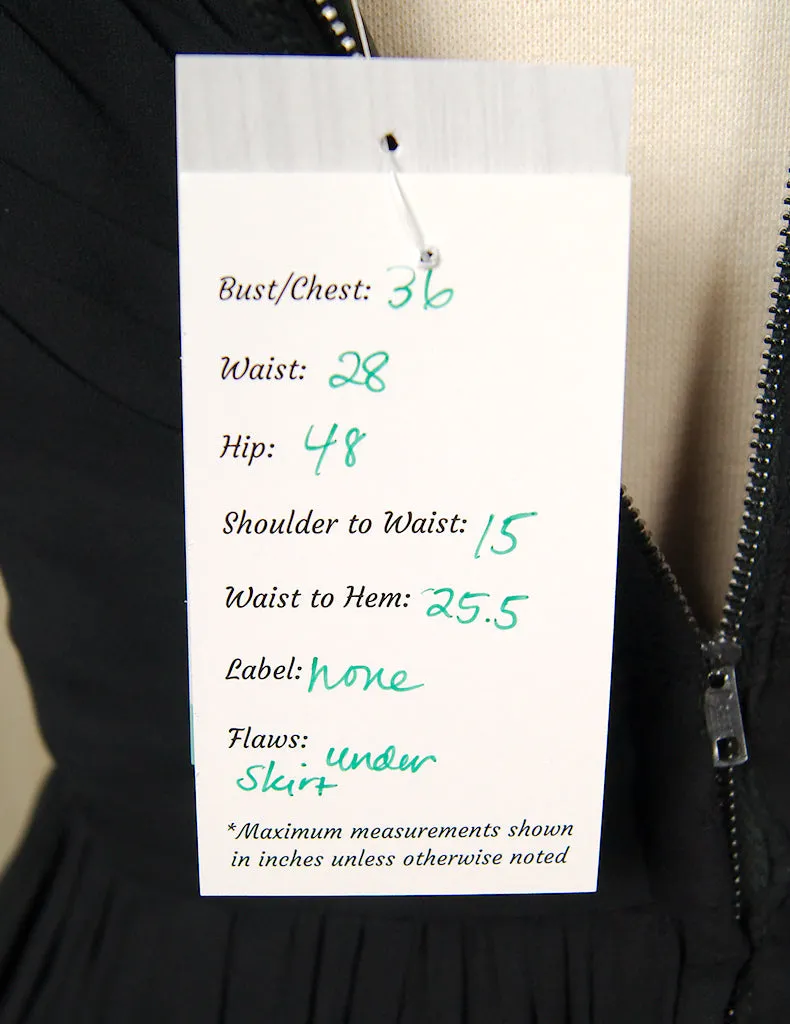 Bust/Chest: 36
Waist: 28
Hip: 48
Shoulder to Waist: 15
Waist to Hem: 25.5
Label: none
Flaws: under
skirt
*Maximum measurements shown
in inches unless otherwise noted